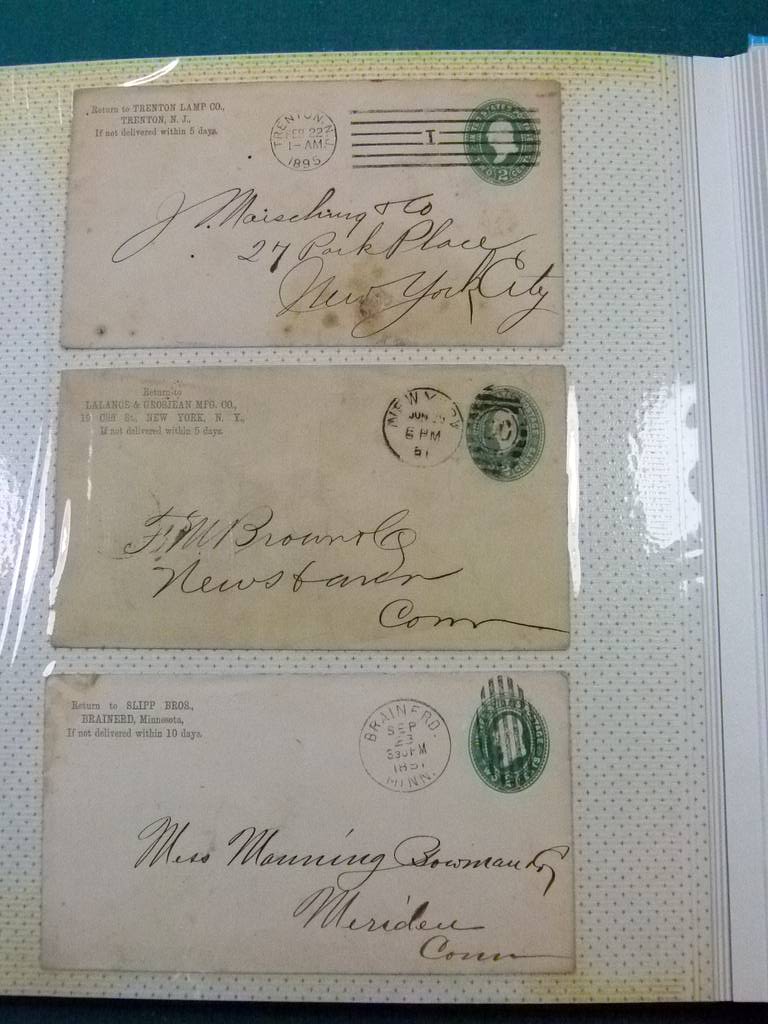 Return to TRENTON LAMP CO.,
TRENTON, N. J.,
If not delivered within 5 days.
TRENTON, N.J.
FEB 22
1-AM
1895
I
UNITED STATES POSTAGE
TWO 2 CENTS
J. Maisching & Co
27 Park Place
New York City
Return to
LALANCE & GROSJEAN MFG. CO.,
19 Cliff St., NEW YORK, N. Y.,
If not delivered within 5 days.
NEW YORK
JUN
6 PM
F. M Brown & Co
New Haven
Conn
Return to SLIPP BROS.,
BRAINERD, Minnesota,
If not delivered within 10 days.
BRAINERD.
SEP
23
830PM
MINN.
Mess Manning Bowman & Co
Meriden
Conn